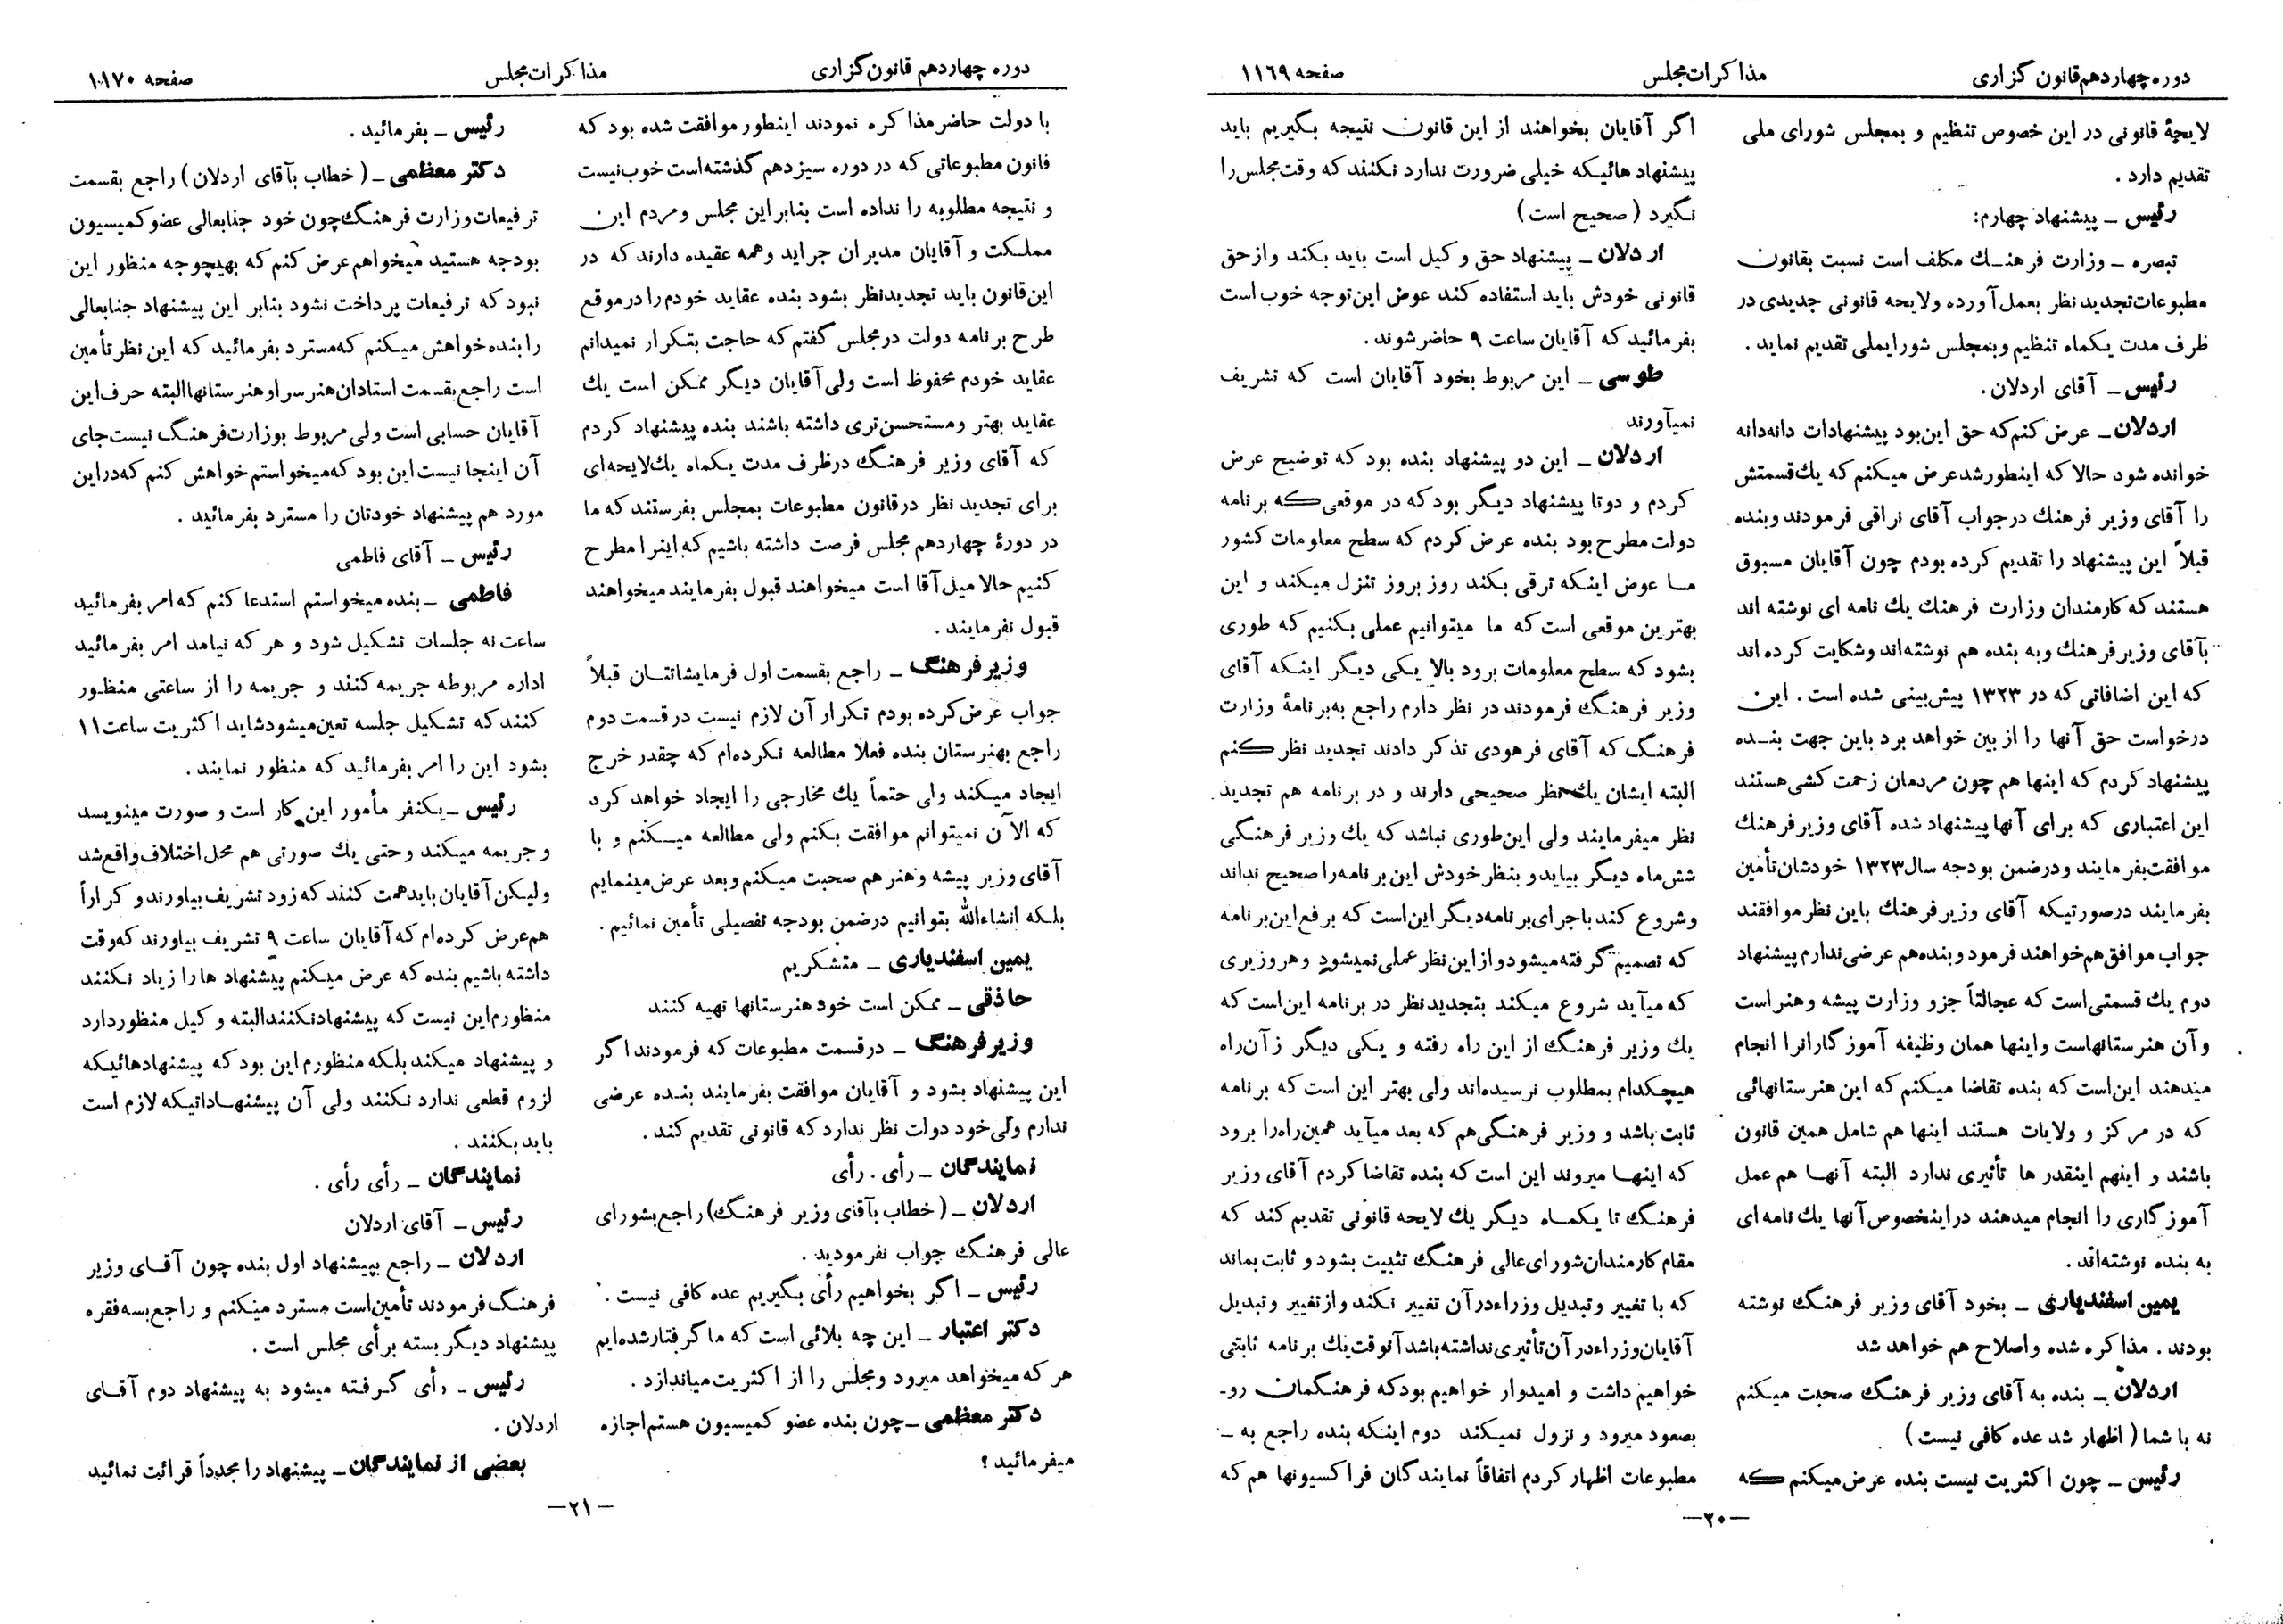 دوره چهاردهم قانون گزاری
مذاکرات مجلس
صفحه ۱۱۶۹
لایحهٔ قانونی در این خصوص تنظیم و بمجلس شورای ملی
تقدیم دارد .
رئیس ـ پیشنهاد چهارم:
تبصره ـ وزارت فرهنك مکلف است نسبت بقانون
مطبوعات تجدید نظر بعمل آورده ولایحه قانونی جدیدی در
ظرف مدت یکماه تنظیم وبمجلس شورایملی تقدیم نماید .
رئیس ـ آقای اردلان.
اردلان ـ عرض کنم که حق این بود پیشنهادات دانه دانه
خوانده شود حالا که اینطور شد عرض میکنم که یك قسمتش
را آقای وزیر فرهنك در جواب آقای نراقی فرمودند وبنده
قبلاً این پیشنهاد را تقدیم کرده بودم چون آقایان مسبوق
هستند که کارمندان وزارت فرهنك یك نامه ای نوشته اند
بآقای وزیر فرهنك وبه بنده هم نوشته‌اند وشکایت کرده اند
که این اضافاتی که در ۱۳۲۳ پیش بینی شده است . این
درخواست حق آنها را از بین خواهد برد باین جهت بنده
پیشنهاد کردم که اینها هم چون مردمان زحمت کشی هستند
این اعتباری که برای آنها پیشنهاد شده آقای وزیر فرهنك
موافقت بفرمایند ودرضمن بودجه سال ۱۳۲۳ خودشان تأمین
بفرمایند درصورتیکه آقای وزیر فرهنك باین نظر موافقند
جواب موافق هم خواهند فرمود وبنده هم عرضی ندارم پیشنهاد
دوم یك قسمتی است که عجالتاً جزو وزارت پیشه وهنر است
وآن هنرستانهاست واینها همان وظیفه آموزگارانرا انجام
میدهند این است که بنده تقاضا میکنم که این هنرستانهائی
که در مرکز و ولایات هستند اینها هم شامل همین قانون
باشند و اینهم اینقدر ها تأثیری ندارد البته آنها هم عمل
آموزگاری را انجام میدهند دراینخصوص آنها یك نامه ای
به بنده نوشته‌اند .
یمین اسفندیاری ـ بخود آقای وزیر فرهنگ نوشته
بودند . مذاکره شده واصلاح هم خواهد شد
اردلان ـ بنده به آقای وزیر فرهنگ صحبت میکنم
نه با شما ( اظهار شد عده کافی نیست )
رئیس ـ چون اکثریت نیست بنده عرض میکنم که
اگر آقایان بخواهند از این قانون نتیجه بگیریم باید
پیشنهاد هائیکه خیلی ضرورت ندارد نکنند که وقت مجلس را
نگیرد ( صحیح است )
اردلان ـ پیشنهاد حق وکیل است باید بکند واز حق
قانونی خودش باید استفاده کند عوض این توجه خوب است
بفرمائید که آقایان ساعت ۹ حاضر شوند .
طوسی ـ این مربوط بخود آقایان است که تشریف
نمیآورند
اردلان ـ این دو پیشنهاد بنده بود که توضیح عرض
کردم و دوتا پیشنهاد دیگر بود که در موقعی که برنامه
دولت مطرح بود بنده عرض کردم که سطح معلومات کشور
ما عوض اینکه ترقی بکند روز بروز تنزل میکند و این
بهترین موقعی است که ما میتوانیم عملی بکنیم که طوری
بشود که سطح معلومات برود بالا یکی دیگر اینکه آقای
وزیر فرهنگ فرمودند در نظر دارم راجع به برنامهٔ وزارت
فرهنگ که آقای فرهودی تذکر دادند تجدید نظر کنم
البته ایشان یك نظر صحیحی دارند و در برنامه هم تجدید
نظر میفرمایند ولی این طوری نباشد که یك وزیر فرهنگی
شش ماه دیگر بیاید و بنظر خودش این برنامه را صحیح نداند
وشروع کند باجرای برنامه دیگر این است که برفع این برنامه
که تصمیم گرفته میشود و از این نظر عملی نمیشود وهر وزیری
که میآید شروع میکند بتجدید نظر در برنامه این است که
یك وزیر فرهنگ از این راه رفته و یکی دیگر زآن راه
هیچکدام بمطلوب نرسیده‌اند ولی بهتر این است که برنامه
ثابت باشد و وزیر فرهنگی هم که بعد میآید همین راه را برود
که اینها میروند این است که بنده تقاضا کردم آقای وزیر
فرهنگ تا یکماه دیگر یك لایحه قانونی تقدیم کند که
مقام کارمندان شورای عالی فرهنگ تثبیت بشود و ثابت بماند
که با تغییر وتبدیل وزراء در آن تغییر نکند واز تغییر وتبدیل
آقایان وزراء در آن تأثیری نداشته باشد آنوقت یك برنامه ثابتی
خواهیم داشت و امیدوار خواهیم بود که فرهنگمان رو-
بصعود میرود و نزول نمیکند دوم اینکه بنده راجع به ـ
مطبوعات اظهار کردم اتفاقاً نمایندگان فراکسیونها هم که
—۲۰—
دوره چهاردهم قانون گزاری
مذاکرات مجلس
صفحه ۱۱۷۰
با دولت حاضر مذاکره نمودند اینطور موافقت شده بود که
قانون مطبوعاتی که در دوره سیزدهم گذشته است خوب نیست
و نتیجه مطلوبه را نداده است بنابراین مجلس ومردم این
مملکت و آقایان مدیران جراید وهمه عقیده دارند که در
این قانون باید تجدید نظر بشود بنده عقاید خودم را در موقع
طرح برنامه دولت در مجلس گفتم که حاجت بتکرار نمیدانم
عقاید خودم محفوظ است ولی آقایان دیگر ممکن است یك
عقاید بهتر ومستحسن تری داشته باشند بنده پیشنهاد کردم
که آقای وزیر فرهنگ در ظرف مدت یکماه یك لایحه‌ای
برای تجدید نظر در قانون مطبوعات بمجلس بفرستند که ما
در دورهٔ چهاردهم مجلس فرصت داشته باشیم که اینرا مطرح
کنیم حالا میل آقا است میخواهند قبول بفرمایند میخواهند
قبول نفرمایند .
وزیر فرهنگ ـ راجع بقسمت اول فرمایشاتتان قبلاً
جواب عرض کرده بودم تکرار آن لازم نیست در قسمت دوم
راجع بهنرستان بنده فعلاً مطالعه نکرده‌ام که چقدر خرج
ایجاد میکند ولی حتماً یك مخارجی را ایجاد خواهد کرد
که الآن نمیتوانم موافقت بکنم ولی مطالعه میکنم و با
آقای وزیر پیشه وهنر هم صحبت میکنم وبعد عرض مینمایم
بلکه انشاءالله بتوانیم درضمن بودجه تفصیلی تأمین نمائیم .
یمین اسفندیاری ـ متشکریم
حاذقی ـ ممکن است خود هنرستانها تهیه کنند
وزیر فرهنگ ـ درقسمت مطبوعات که فرمودند اگر
این پیشنهاد بشود و آقایان موافقت بفرمایند بنده عرضی
ندارم ولی خود دولت نظر ندارد که قانونی تقدیم کند .
نمایندگان ـ رأی . رأی
اردلان ـ ( خطاب بآقای وزیر فرهنگ) راجع بشورای
عالی فرهنگ جواب نفرمودید .
رئیس ـ اگر بخواهیم رأی بگیریم عده کافی نیست .
دکتر اعتبار ـ این چه بلائی است که ما گرفتار شده‌ایم
هر که میخواهد میرود ومجلس را از اکثریت میاندازد .
دکتر معظمی ـ چون بنده عضو کمیسیون هستم اجازه
میفرمائید ؟
رئیس ـ بفرمائید .
دکتر معظمی ـ ( خطاب بآقای اردلان ) راجع بقسمت
ترفیعات وزارت فرهنگ چون خود جنابعالی عضو کمیسیون
بودجه هستید میخواهم عرض کنم که بهیچوجه منظور این
نبود که ترفیعات پرداخت نشود بنابر این پیشنهاد جنابعالی
را بنده خواهش میکنم که مسترد بفرمائید که این نظر تأمین
است راجع بقسمت استادان هنرسرا و هنرستانها البته حرف این
آقایان حسابی است ولی مربوط بوزارت فرهنگ نیست جای
آن اینجا نیست این بود که میخواستم خواهش کنم که در این
مورد هم پیشنهاد خودتان را مسترد بفرمائید .
رئیس ـ آقای فاطمی
فاطمی ـ بنده میخواستم استدعا کنم که امر بفرمائید
ساعت نه جلسات تشکیل شود و هر که نیامد امر بفرمائید
اداره مربوطه جریمه کنند و جریمه را از ساعتی منظور
کنند که تشکیل جلسه تعین میشود شاید اکثریت ساعت ۱۱
بشود این را امر بفرمائید که منظور نمایند .
رئیس ـ یکنفر مأمور این کار است و صورت مینویسد
و جریمه میکند وحتی یك صورتی هم محل اختلاف واقع شد
ولیکن آقایان باید همت کنند که زود تشریف بیاورند و کراراً
هم عرض کرده‌ام که آقایان ساعت ۹ تشریف بیاورند که وقت
داشته باشیم بنده که عرض میکنم پیشنهاد ها را زیاد نکنند
منظورم این نیست که پیشنهاد نکنند البته وکیل منظور دارد
و پیشنهاد میکند بلکه منظورم این بود که پیشنهادهائیکه
لزوم قطعی ندارد نکنند ولی آن پیشنهاداتیکه لازم است
باید بکنند .
نمایندگان ـ رأی رأی .
رئیس ـ آقای اردلان
اردلان ـ راجع بپیشنهاد اول بنده چون آقای وزیر
فرهنگ فرمودند تأمین است مسترد میکنم و راجع بسه فقره
پیشنهاد دیگر بسته برأی مجلس است .
رئیس ـ رأی گرفته میشود به پیشنهاد دوم آقای
اردلان .
بعضی از نمایندگان ـ پیشنهاد را مجدداً قرائت نمائید
—۲۱—